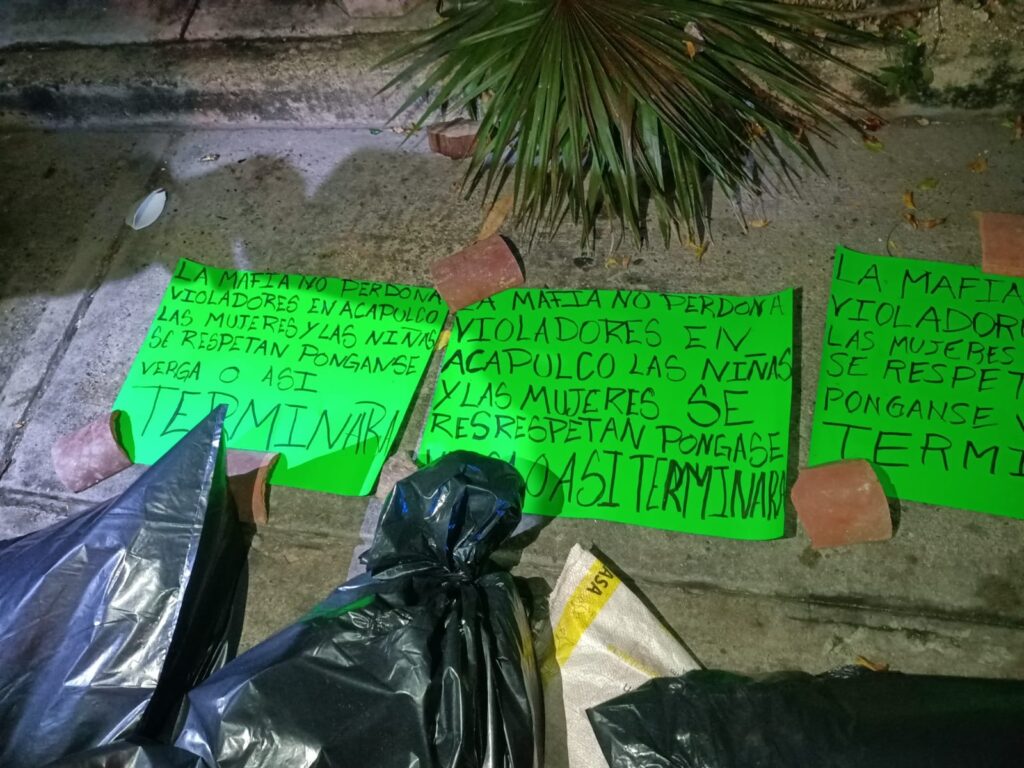 LA MAFIA NO PERDONA
VIOLADORES EN ACAPULCO
LAS MUJERES Y LAS NIÑAS
SE RESPETAN PONGANSE
VERGA O ASI
TERMINARA
LA MAFIA NO PERDONA
VIOLADORES EN
ACAPULCO LAS NIÑAS
Y LAS MUJERES SE
RESRESPETAN PONGASE
O ASI TERMINARA
LA MAFIA
LAS MUJERES
SE
PONGANSE
ASA